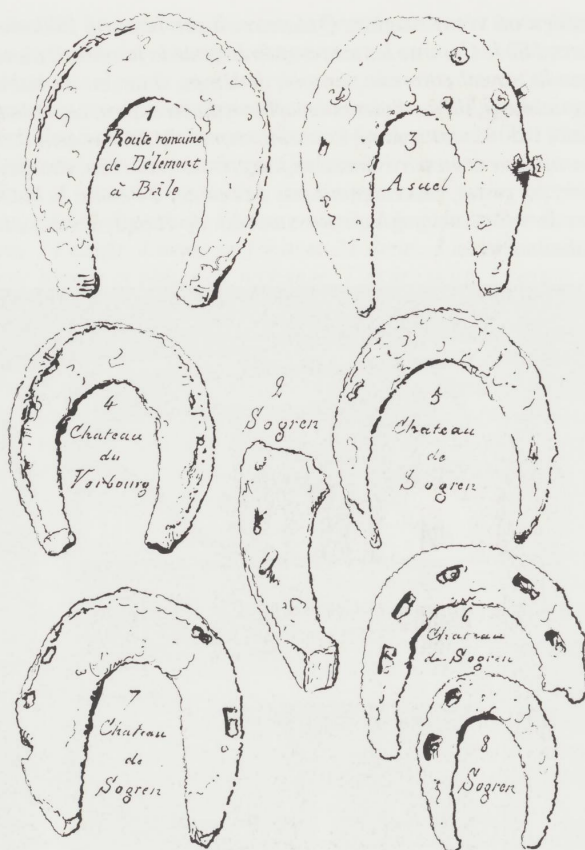 1
Route romaine
de Délémont
à Bâle
3
Asuel
4
Chateau
du
Vorbourg
2
Sogren
5
Chateau
de
Sogren
6
Chateau
de Sogren
7
Chateau
de
Sogren
8
Sogren